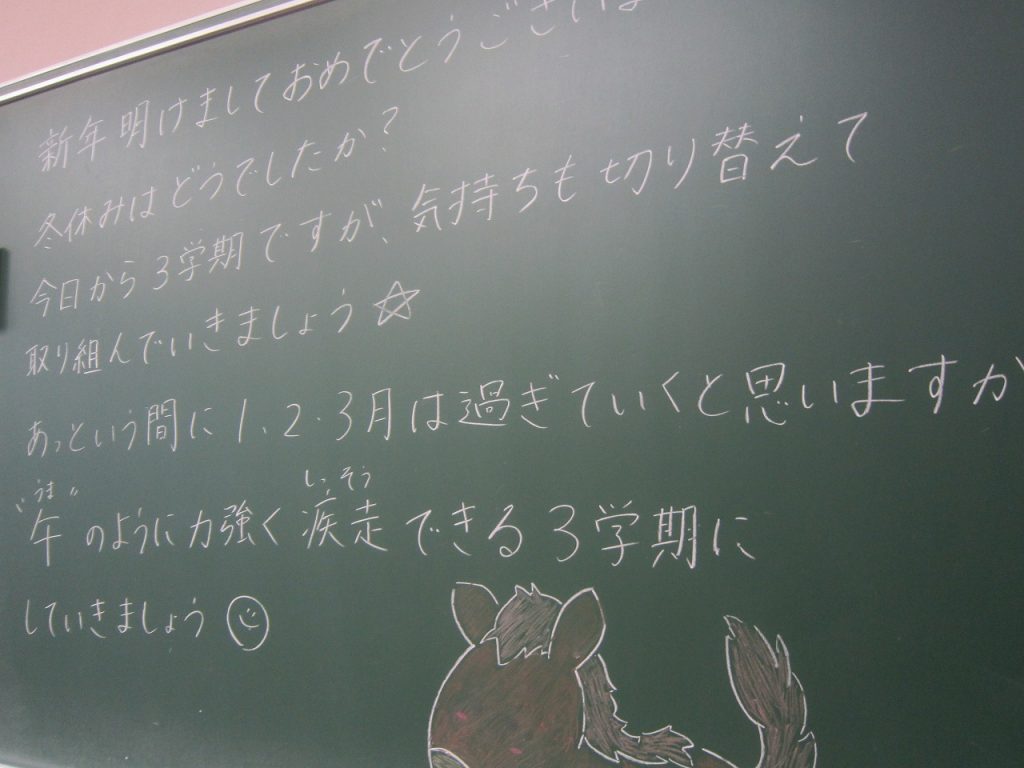 新年明けましておめでとうござい
冬休みはどうでしたか？
今日から3学期ですが、気持ちも切り替えて
取り組んでいきましょう☆
あっという間に1.2.3月は過ぎていくと思いますが
"うま" しっそう
午のように力強く疾走できる3学期に
していきましょう